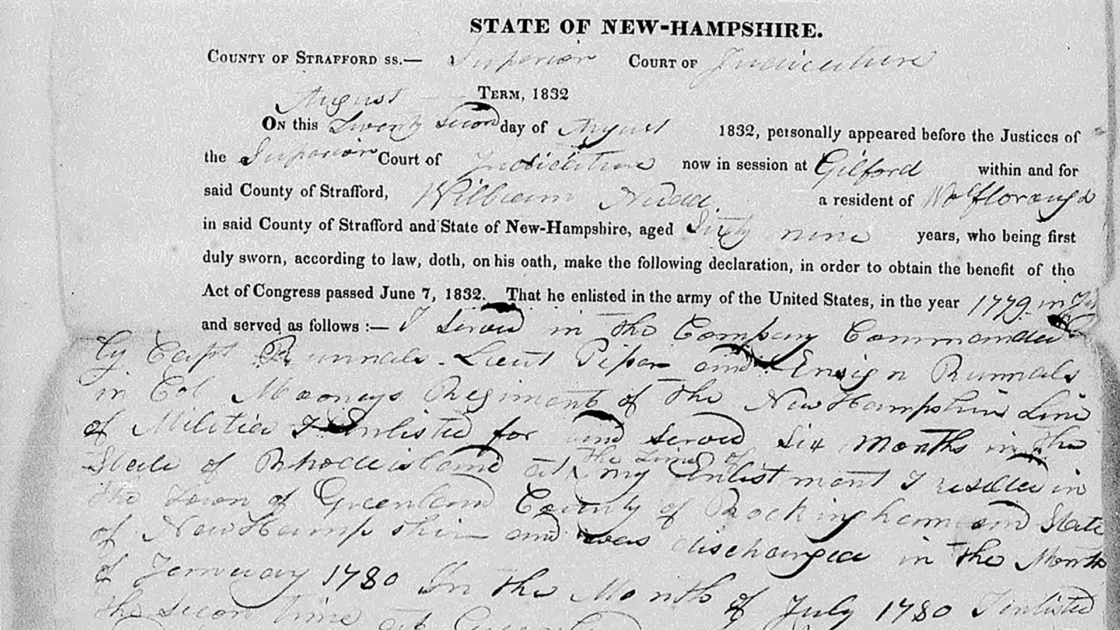 STATE OF NEW-HAMPSHIRE.
COUNTY OF STRAFFORD SS.— Superior COURT OF Judicature
August TERM, 1832
ON this Twenty second day of August 1832, personally appeared before the Justices of
the Superior Court of Judicature now in session at Gilford within and for
said County of Strafford, William a resident of Wolfborough
in said County of Strafford and State of New-Hampshire, aged Sixty nine years, who being first
duly sworn, according to law, doth, on his oath, make the following declaration, in order to obtain the benefit of the
Act of Congress passed June 7, 1832. That he enlisted in the army of the United States, in the year 1779 in
and served as follows :— I served in the Company Commanded
by Capt Runnals - Lieut Piper and Ensign Runnals
in Col Mooneys Regiment of the New Hampshire Line
of Militia I Enlisted for and served six Months in the
State of Rhodeisland at the time of my Enlistment I resided in
the Town of Greenland County of Rockingham and State
of New Hampshire and was discharged in the Month
of Jenuary 1780 In the Month of July 1780 I inlisted
the second time at